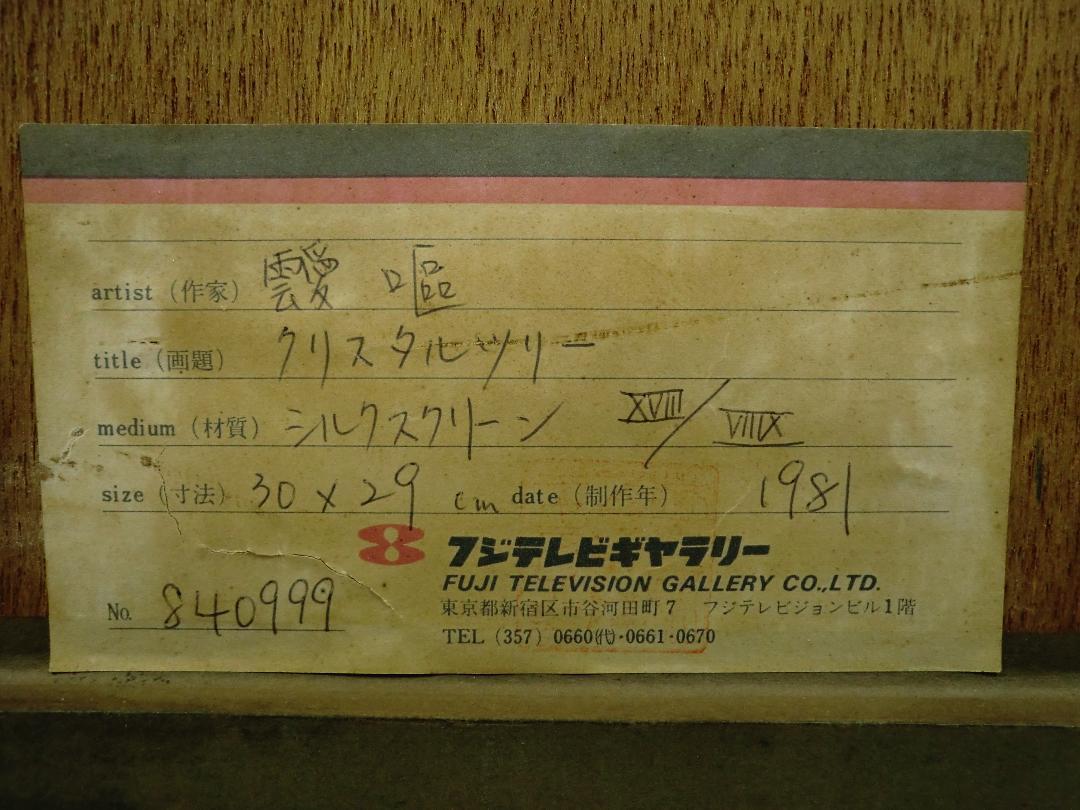 artist (作家) 靉嘔
title (画題) クリスタルツリー
medium (材質) シルクスクリーン XVIII/VIIIX
size (寸法) 30 x 29 cm date (制作年) 1981
フジテレビギャラリー
FUJI TELEVISION GALLERY CO.,LTD.
No. 840999
東京都新宿区市谷河田町7 フジテレビジョンビル1階
TEL (357) 0660(代)・0661・0670